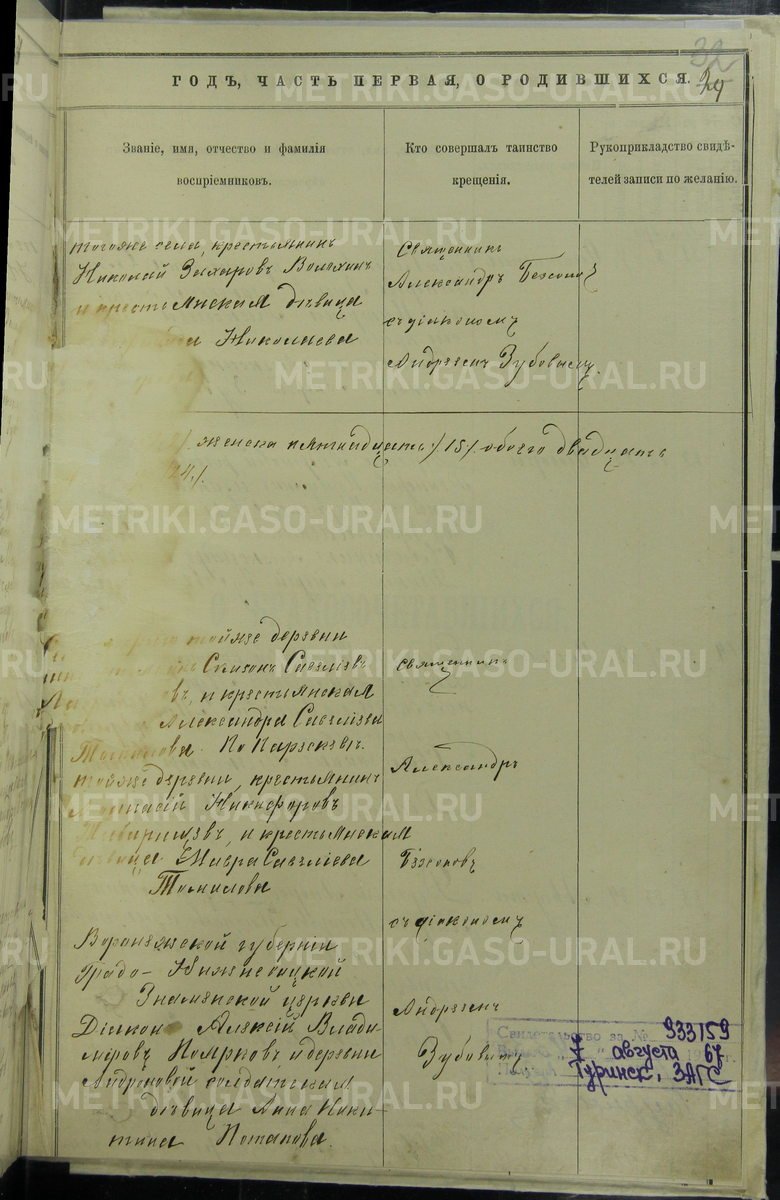 32
29
ГОДЪ, ЧАСТЬ ПЕРВАЯ, О РОДИВШИХСЯ.
Званіе, имя, отчество и фамилія
воспріемниковъ.
Кто совершалъ таинство
крещенія.
Рукоприкладство свидѣ-
телей записи по желанію.
тогоже села, крестьянинъ
Николай Захаровъ Волохинъ
и крестьянская дѣвица
Николаева
Священникъ
Александръ Безсоновъ
съ діакономъ
Андреемъ Зубовымъ.
женска пятнадцать /15/. обоего двадцать
/.
тойже деревни
Савелiевъ
и крестьянская
Александра Савеліева
Томилова. По Параскевѣ.
тойже деревни, крестьянинъ
Никифоровъ
и крестьянская
дѣвица Савеліева
Томилова
Священникъ
Александръ
Безсоновъ
съ діакономъ
Андреемъ
Зубовымъ.
Воронежской губерніи
Градо-Нижнедѣвицкой
Знаменской церкви
Діяконъ Алексій Влади-
міровъ и деревни
Андроновой солдатская
дѣвица Анна Ники-
тина Потапова.
Свидетельство за № 933159
7 " августа 1967 г.
Туринск. ЗАГС
METRIKI.GASO-URAL.RU